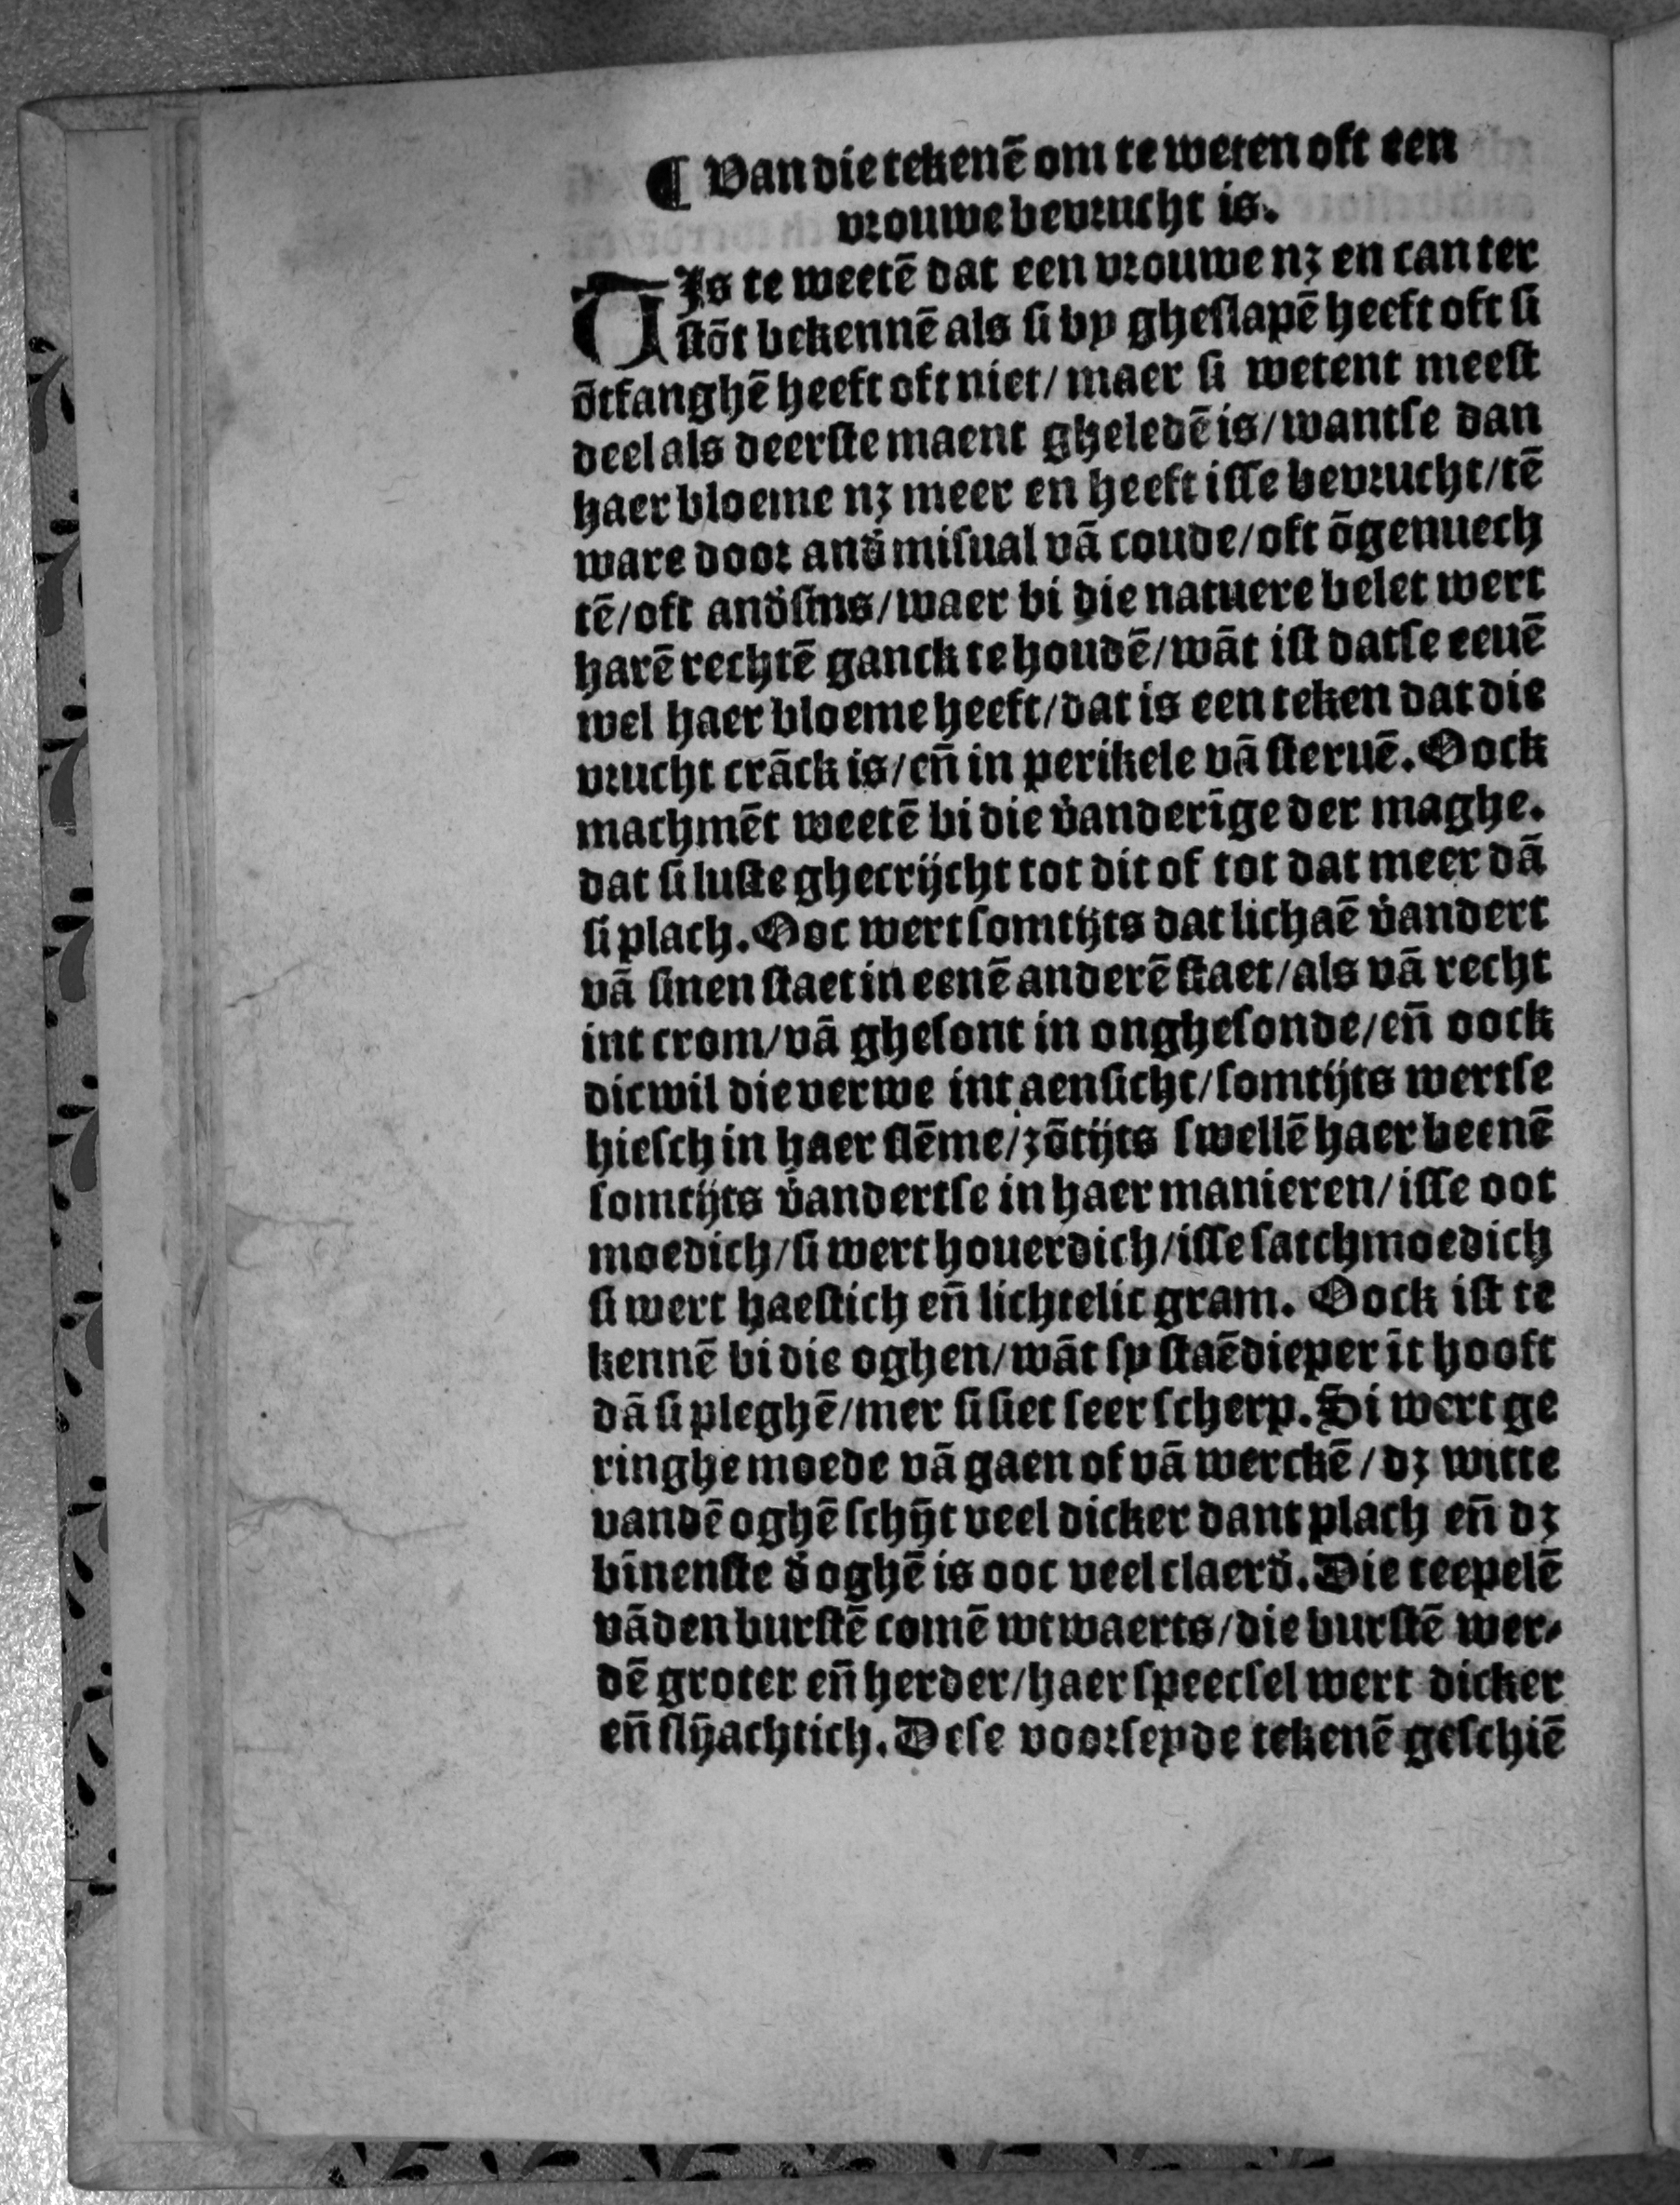 ¶ Van die tekenē om te weten oft een
vrouwe bevrucht is.
TIs te weetē dat een vrouwe nꝫ en can ter
stōt bekennē als si by gheslapē heeft oft si
ōtfanghē heeft oft niet/ maer si wetent meest
deel als deerste maent gheledē is/ wantse dan
haer bloeme nꝫ meer en heeft isse bevrucht/ tē
ware door and̛ misual vā coude/ oft ōgenuech
tē/ oft and̛sins/ waer bi die natuere belet wert
harē rechtē ganck te houdē/ wāt ist datse eeuē
wel haer bloeme heeft/ dat is een teken dat die
vrucht crāck is/ en̄ in perikele vā steruē. Oock
machmēt weetē bi die v̛anderīge der maghe.
dat si luste ghecrijcht tot dit of tot dat meer dā
si plach. Ooc wert somtijts dat lichaē v̛andert
vā sinen staet in eenē anderē staet/ als vā recht
int crom/ vā ghesont in onghesonde/ en̄ oock
dicwil die verwe int aensicht/ somtijts wertse
hiesch in haer stēme/ zōtijts swellē haer beenē
somtijts v̛andertse in haer manieren/ isse oot
moedich/ si wert houerdich/ isse satchmoedich
si wert haestich en̄ lichtelic gram. Oock ist te
kennē bi die oghen/ wāt sy staē dieper īt hooft
dā si pleghē/ mer si siet seer scherp. Si wert ge
ringhe moede vā gaen of vā werckē/ dꝫ witte
vandē oghē schijt veel dicker dant plach en̄ dꝫ
bīnenste d̛ oghē is ooc veel claerd̛. Die teepelē
vāden burstē comē wtwaerts/ die burstē wer-
dē groter en̄ herder/ haer speecsel wert dicker
en̄ slijachtich. Dese voorseyde tekenē geschiē